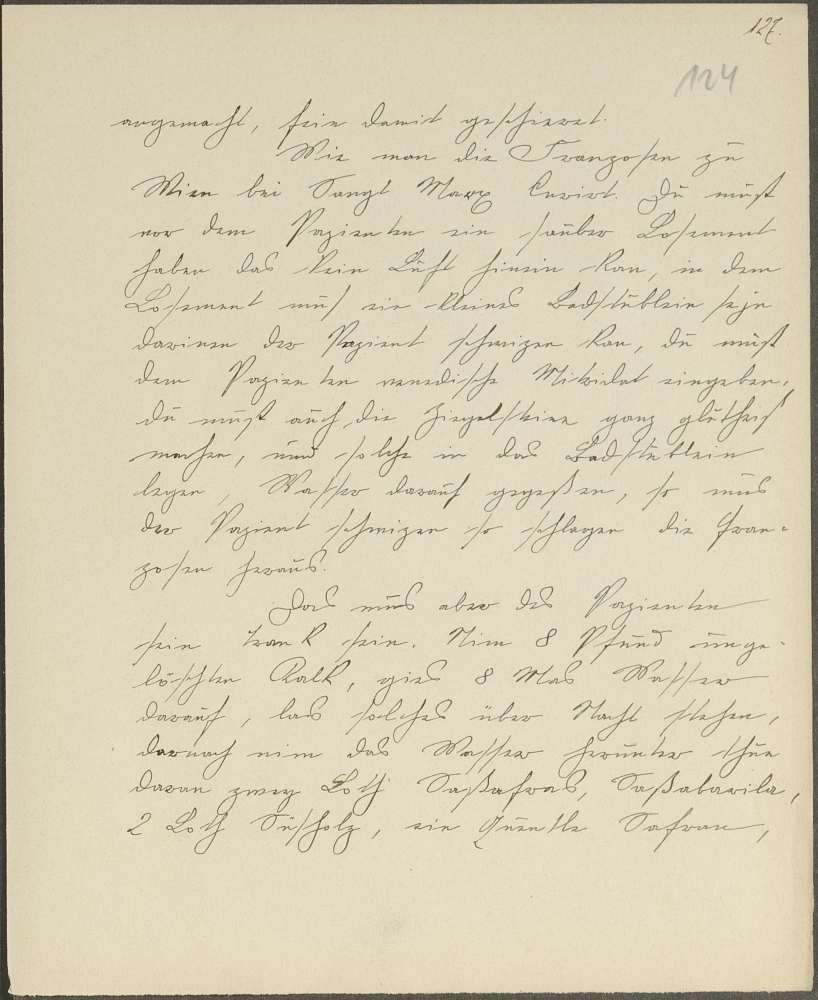 127.
124
angemacht, fein damit geschieret.
Wie man die Franzosen zu
Wien bei Sangt Marx Curirt. Du must
vor dem Pazienten ein sauber Losement
haben das kein Luft hinein kan, in dem
Losement mus ein kleines Badstüblein seje
darinen der Pazient schwizen kan, du must
dem Pazienten venedische Mitridat eingeben,
du must auch die Ziegelsteine ganz glutheis
machen, und solche in das Badstüblein
legen, Wasser darauf gegeßen, so mus
der Pazient schwizen so schlagen die Fran-
zosen heraus.
Das mus aber des Pazienten
sein trank sein. Nim 8 Pfund unge-
löschten Kalk, gies 8 Mas Wasser
darauf, las solches über Nacht stehen,
darnach nim das Wasser herunter thue
daran zwey Loth Saßafras, Saßabarila,
2 Loth Süsholz, ein Quentle Safran,